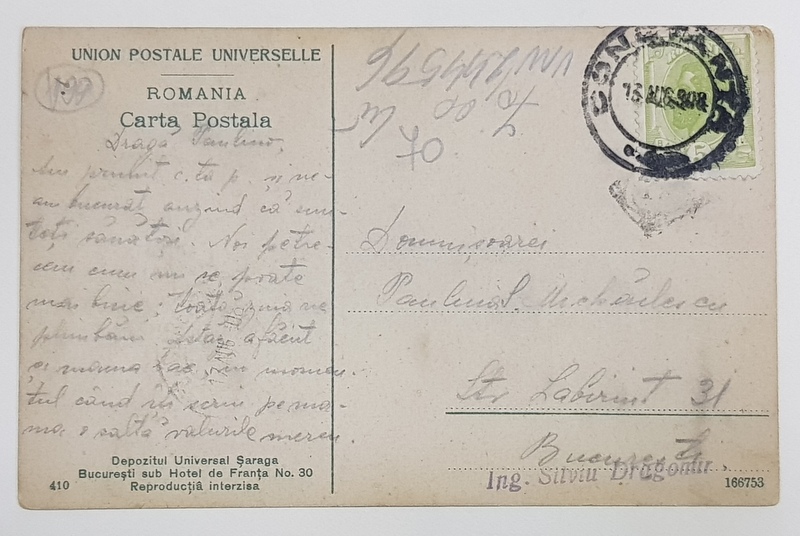 UNION POSTALE UNIVERSELLE
ROMANIA
Carta Postala
Dragă Paulino,
Am primit c. ta p. și ne-
am bucurat auzind că sun-
teți sănătoși. Noi petre-
cem cum nu se poate
mai bine; toată ziua ne
plimbăm. Astăzi a făcut
și mama bae. În momen-
tul când îți scriu pe ma-
ma o saltă valurile mereu.
Depozitul Universal Șaraga
București sub Hotel de Franța No. 30
Reproducțiă interzisa
410
CONSTANTA
15 AUG. 908
Domnișoarei
Paulina S. Michăilescu
Str Labirint 31
București
Ing. Silviu Dragomir
166753